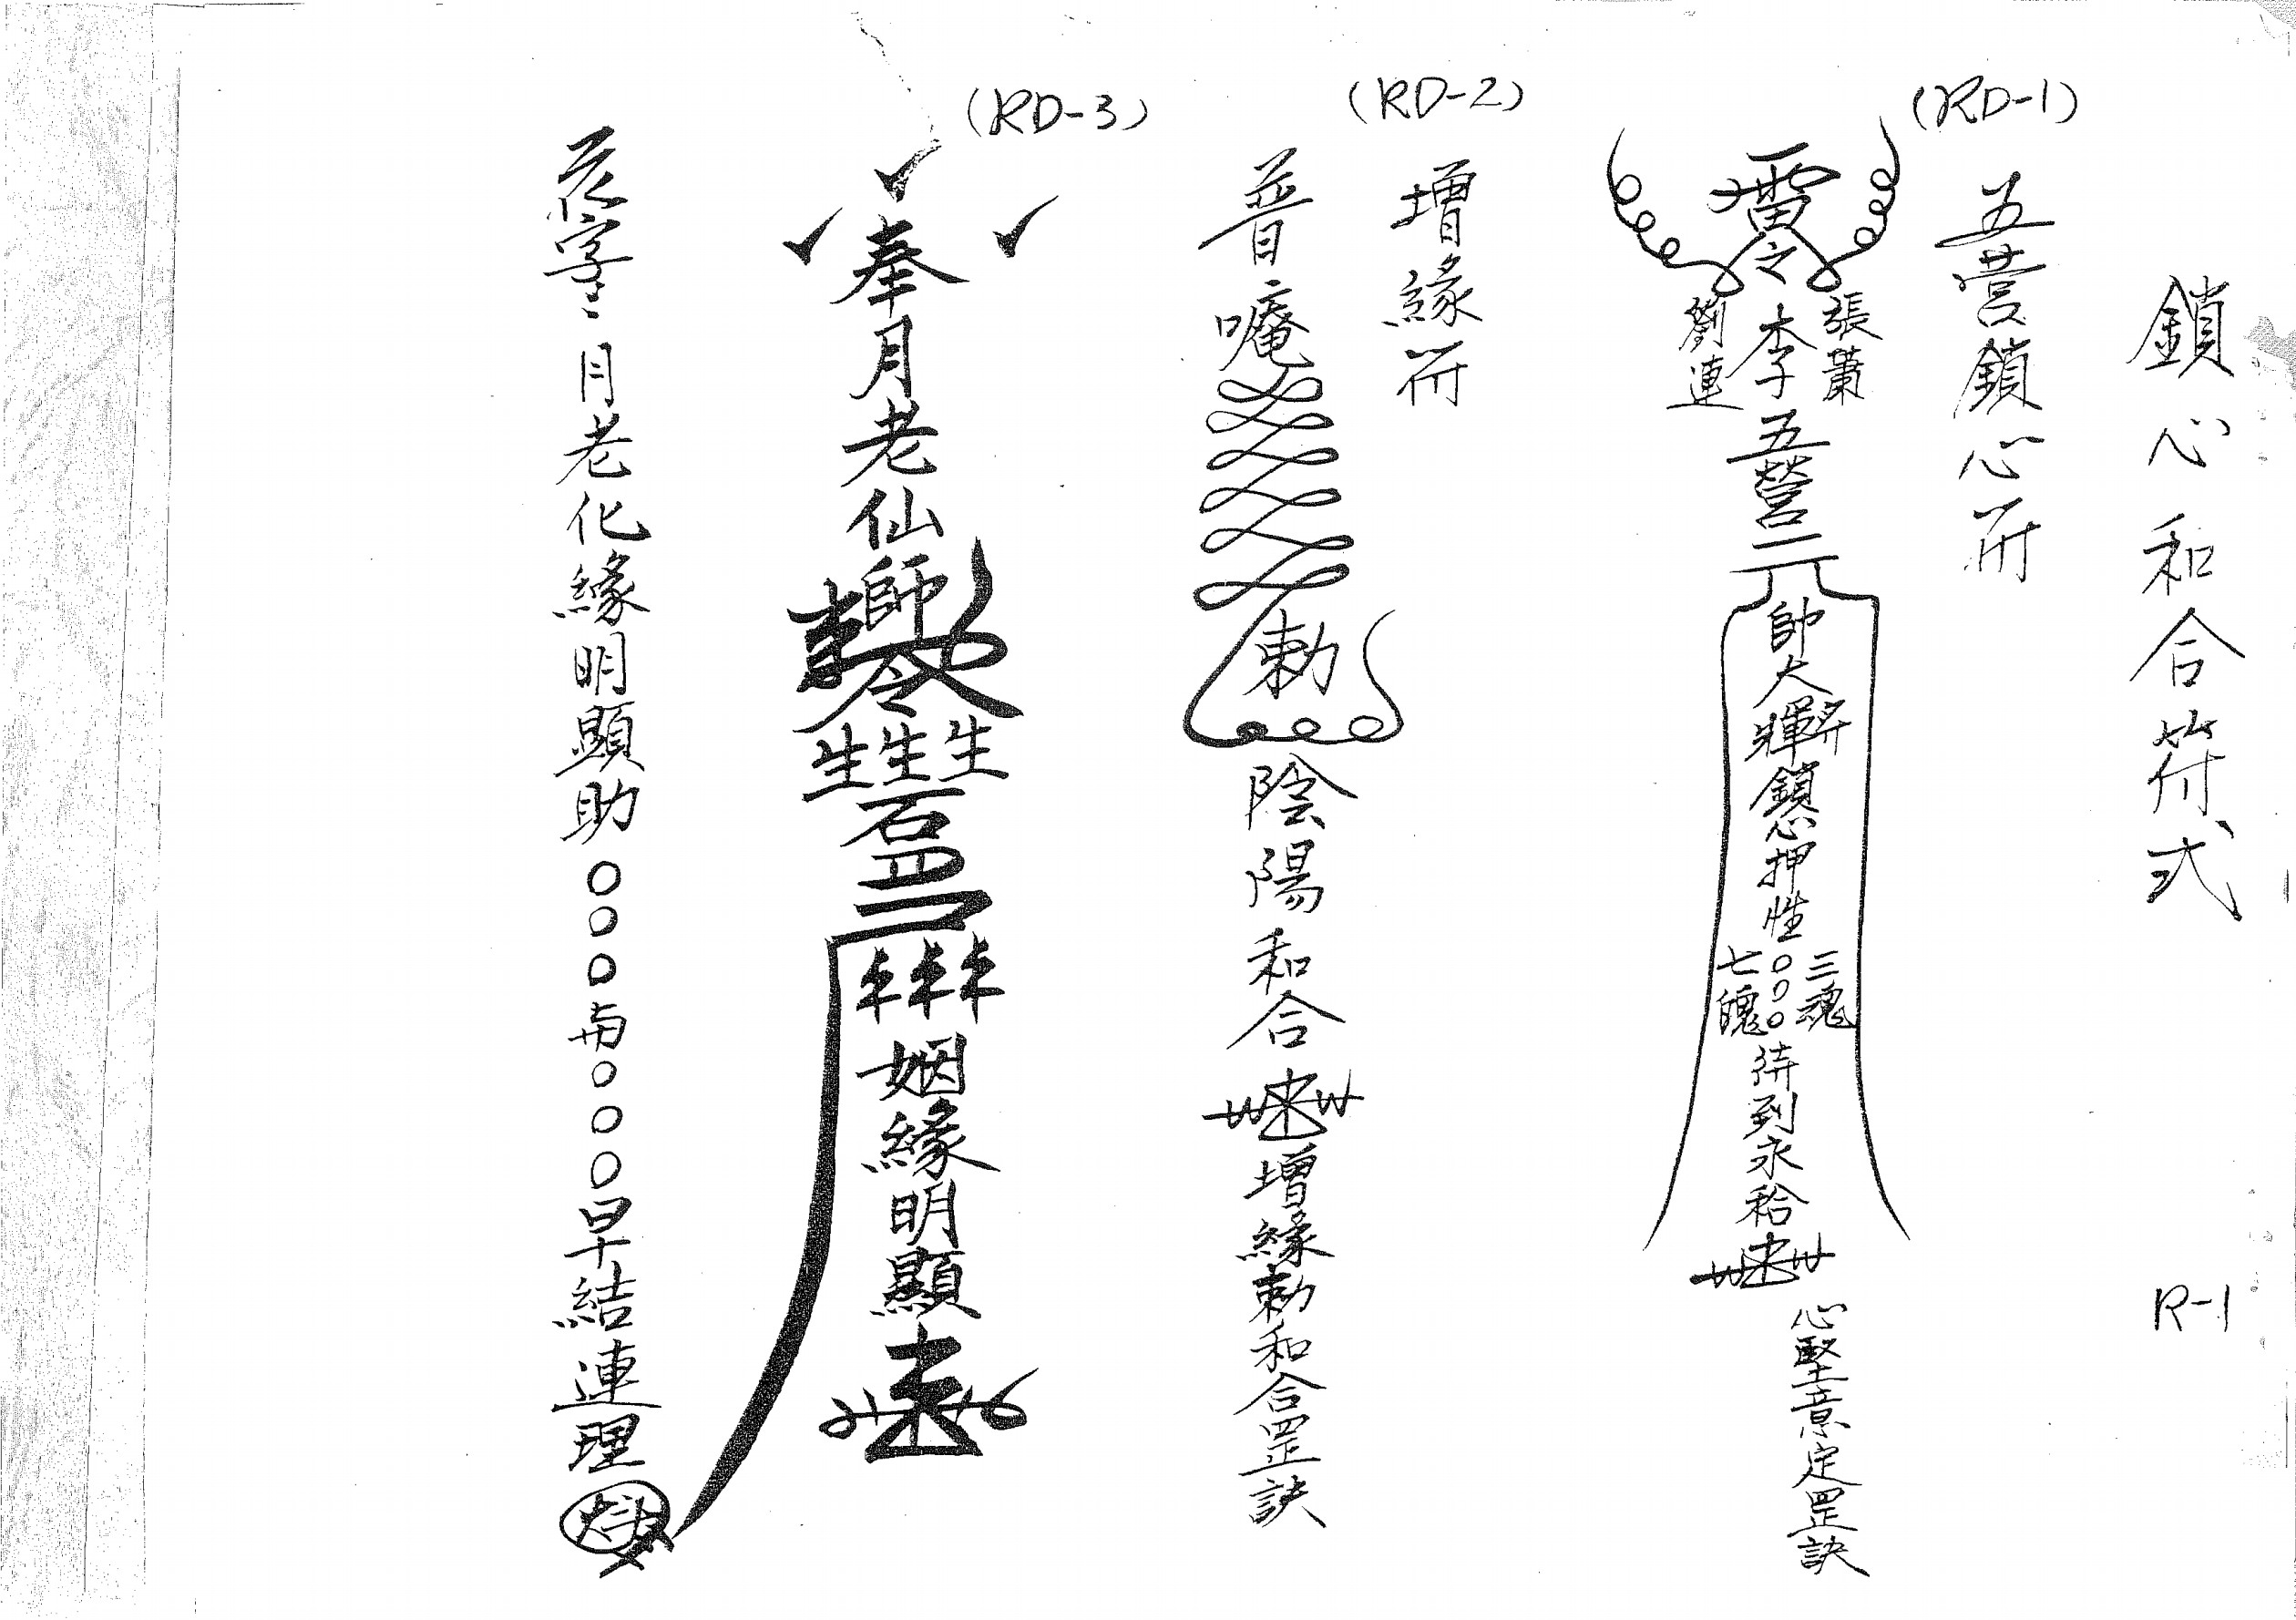 鎖心和合符式
R-1
(RD-1)
五营鎖心符
雷令
張蕭
李
劉連
五營
帥大將
鎖心押性
三魂
○○○
七魄
待到永
心堅意定罡訣
(RD-2)
增緣符
普唵
勅
陰陽和合
增緣勅和合罡訣
(RD-3)
奉月老仙師
令
生生生
姻緣明顯
月老化緣明顯助○○○与○○○早結連理